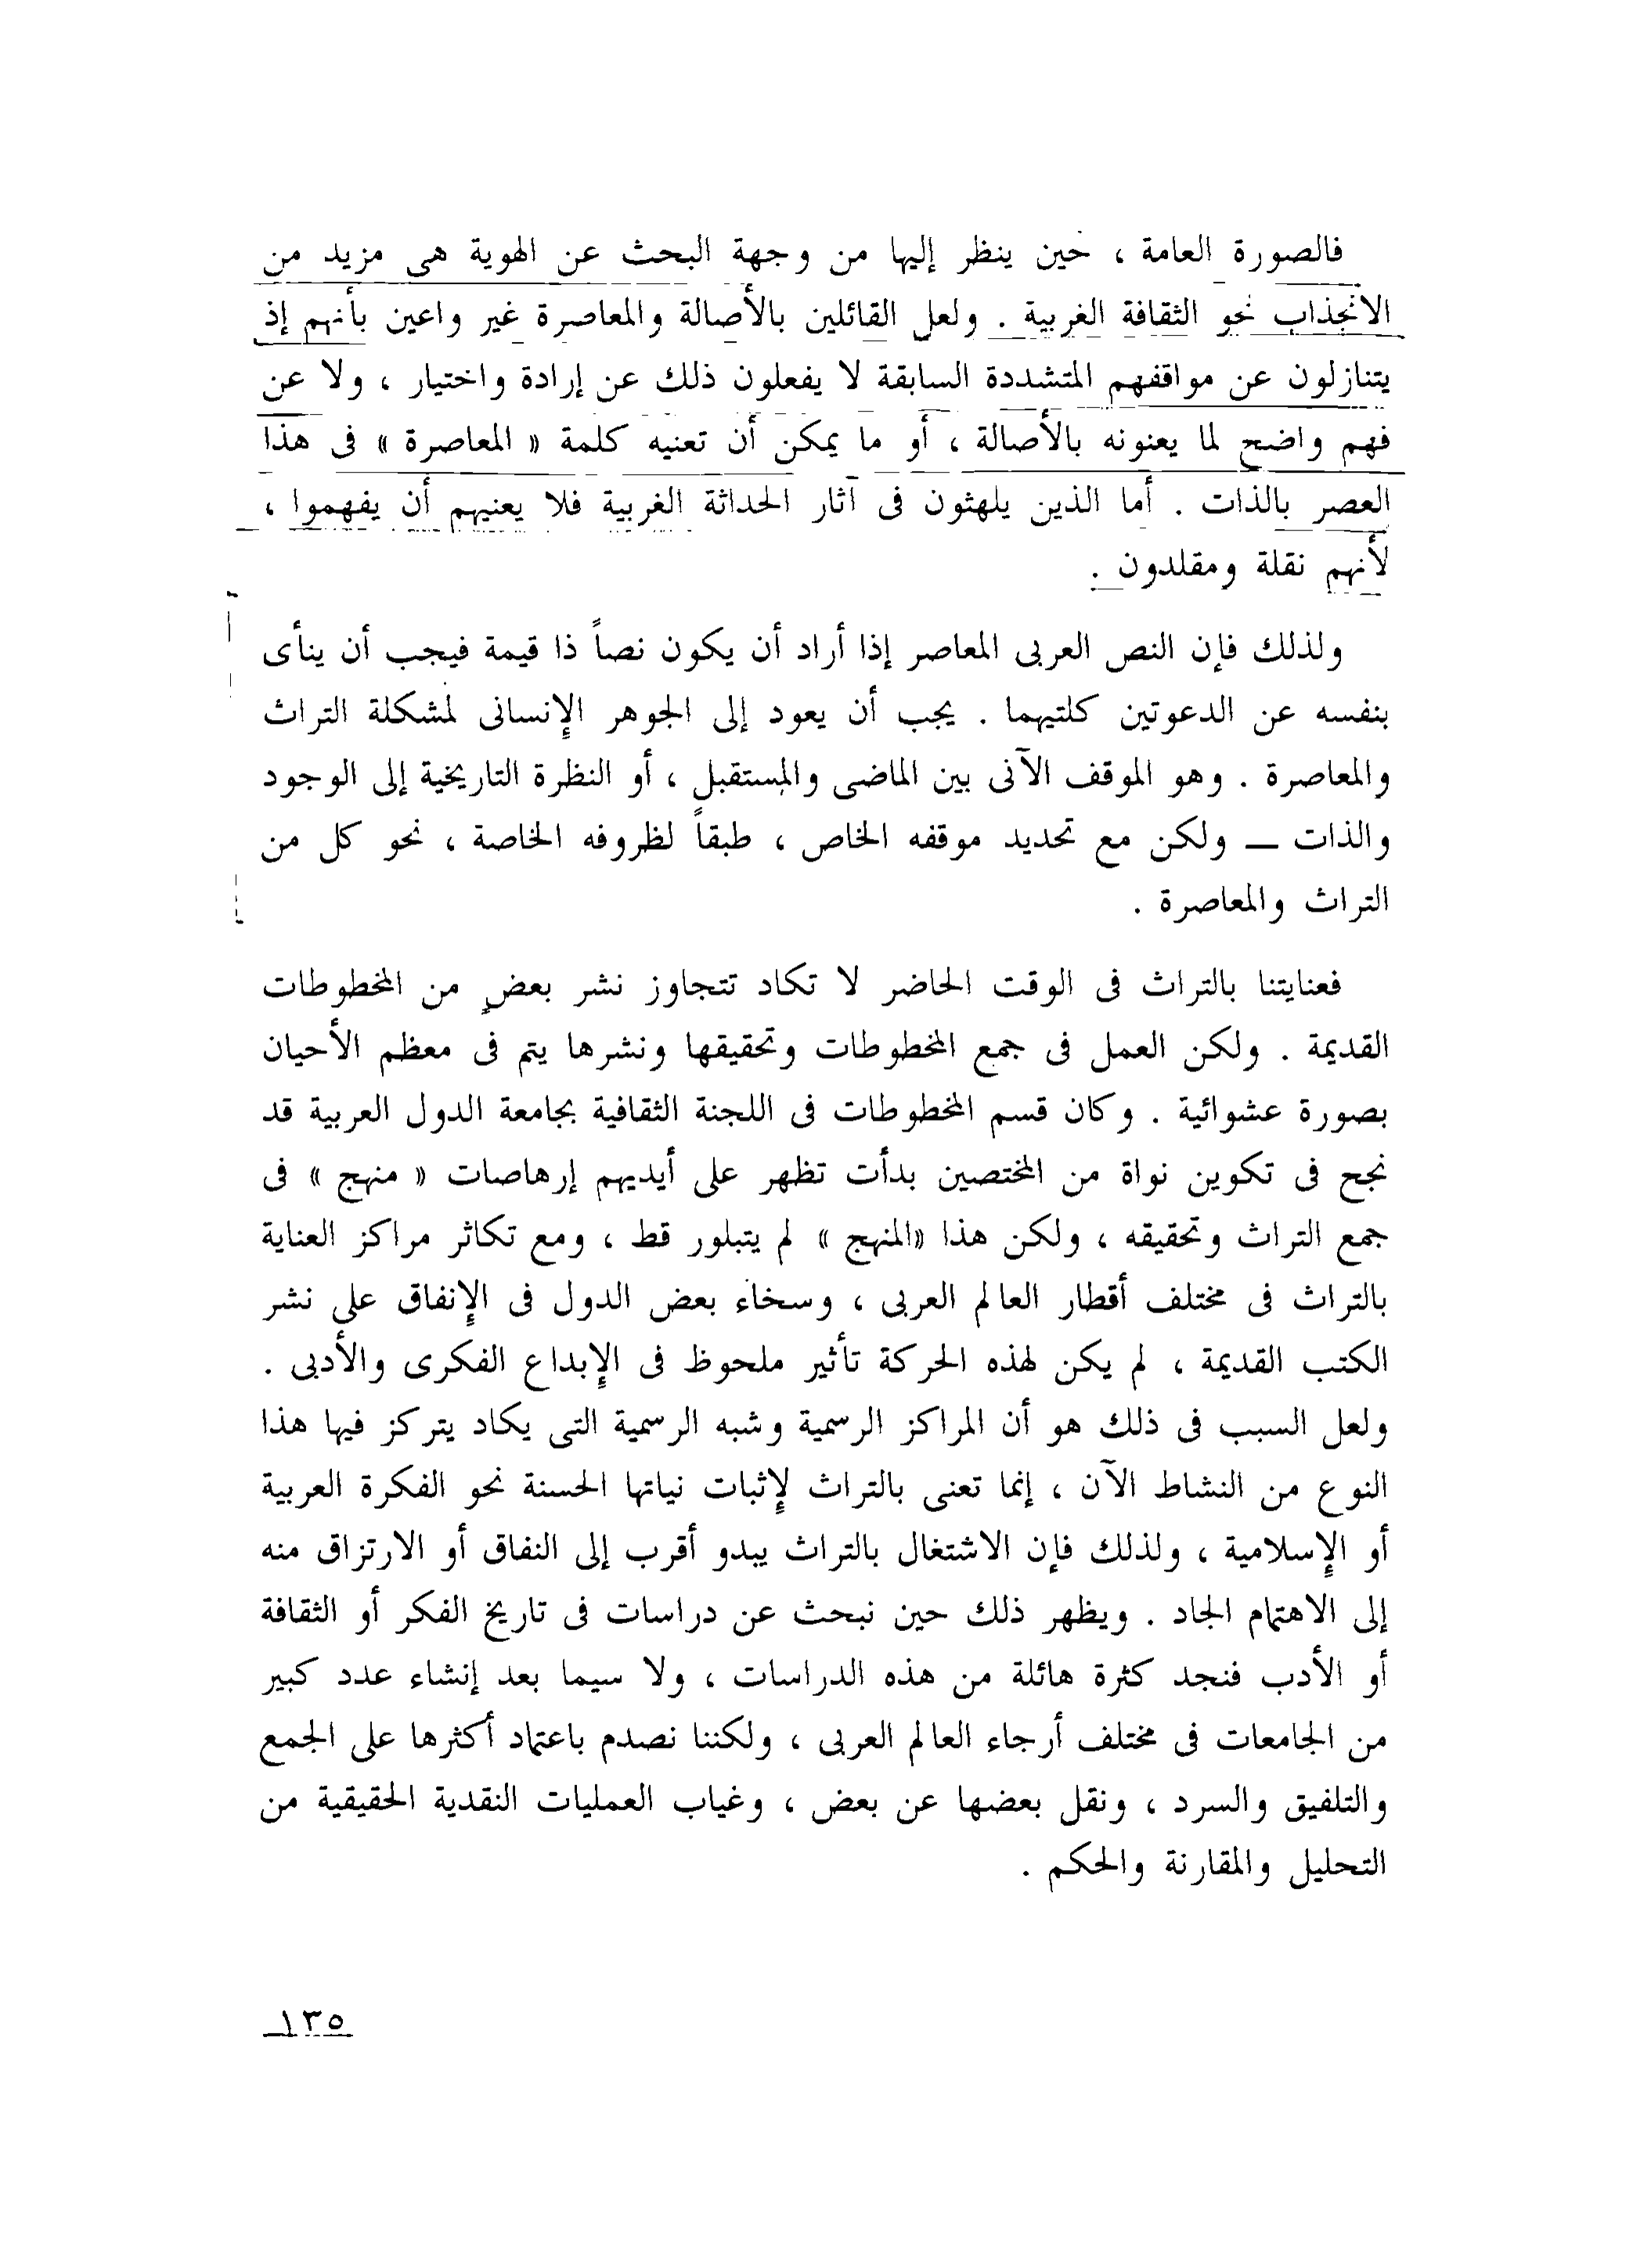 فالصورة العامة ، حين ينظر إليها من وجهة البحث عن الهوية هى مزيد من
الانجذاب نحو الثقافة الغربية . ولعل القائلين بالأصالة والمعاصرة غير واعين بأنهم إذ
يتنازلون عن مواقفهم المتشددة السابقة لا يفعلون ذلك عن إرادة واختيار ، ولا عن
فهم واضح لما يعنونه بالأصالة ، أو ما يمكن أن تعنيه كلمة « المعاصرة » فى هذا
العصر بالذات . أما الذين يلهثون فى آثار الحداثة الغربية فلا يعنيهم أن يفهموا ،
لأنهم نقلة ومقلدون .
ولذلك فإن النص العربى المعاصر إذا أراد أن يكون نصاً ذا قيمة فيجب أن ينأى
بنفسه عن الدعوتين كلتيهما . يجب أن يعود إلى الجوهر الإنسانى لمشكلة التراث
والمعاصرة . وهو الموقف الآنى بين الماضى والمستقبل ، أو النظرة التاريخية إلى الوجود
والذات ــ ولكن مع تحديد موقفه الخاص ، طبقاً لظروفه الخاصة ، نحو كل من
التراث والمعاصرة .
فعنايتنا بالتراث فى الوقت الحاضر لا تكاد تتجاوز نشر بعضٍ من المخطوطات
القديمة . ولكن العمل فى جمع المخطوطات وتحقيقها ونشرها يتم فى معظم الأحيان
بصورة عشوائية . وكان قسم المخطوطات فى اللجنة الثقافية بجامعة الدول العربية قد
نجح فى تكوين نواة من المختصين بدأت تظهر على أيديهم إرهاصات « منهج » فى
جمع التراث وتحقيقه ، ولكن هذا «المنهج » لم يتبلور قط ، ومع تكاثر مراكز العناية
بالتراث فى مختلف أقطار العالم العربى ، وسخاء بعض الدول فى الإنفاق على نشر
الكتب القديمة ، لم يكن لهذه الحركة تأثير ملحوظ فى الإبداع الفكرى والأدبى .
ولعل السبب فى ذلك هو أن المراكز الرسمية وشبه الرسمية التى يكاد يتركز فيها هذا
النوع من النشاط الآن ، إنما تعنى بالتراث لإثبات نياتها الحسنة نحو الفكرة العربية
أو الإسلامية ، ولذلك فإن الاشتغال بالتراث يبدو أقرب إلى النفاق أو الارتزاق منه
إلى الاهتمام الجاد . ويظهر ذلك حين نبحث عن دراسات فى تاريخ الفكر أو الثقافة
أو الأدب فنجد كثرة هائلة من هذه الدراسات ، ولا سيما بعد إنشاء عدد كبير
من الجامعات فى مختلف أرجاء العالم العربى ، ولكننا نصدم باعتماد أكثرها على الجمع
والتلفيق والسرد ، ونقل بعضها عن بعض ، وغياب العمليات النقدية الحقيقية من
التحليل والمقارنة والحكم .
١٣٥